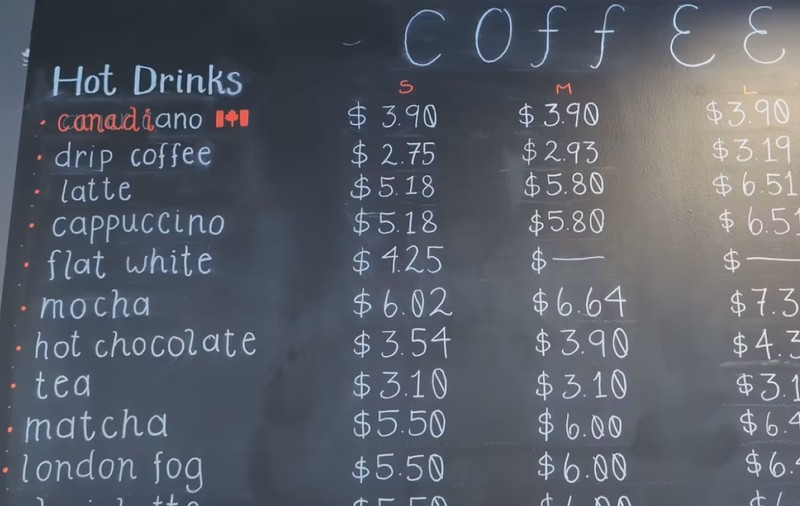 COFFEE
Hot Drinks S M L
canadiano $ 3.90 $ 3.90 $3.90
drip coffee $ 2.75 $2.93 $3.19
latte $5.18 $5.80 $6.51
cappuccino $5.18 $5.80 $6.51
flat white $ 4.25 $— $—
mocha $6.02 $6.64 $7.3
hot chocolate $3.54 $3.90 $4.3
tea $3.10 $3.10 $3.1
matcha $5.50 $6.00 $6.4
london fog $5.50 $6.00 $6.